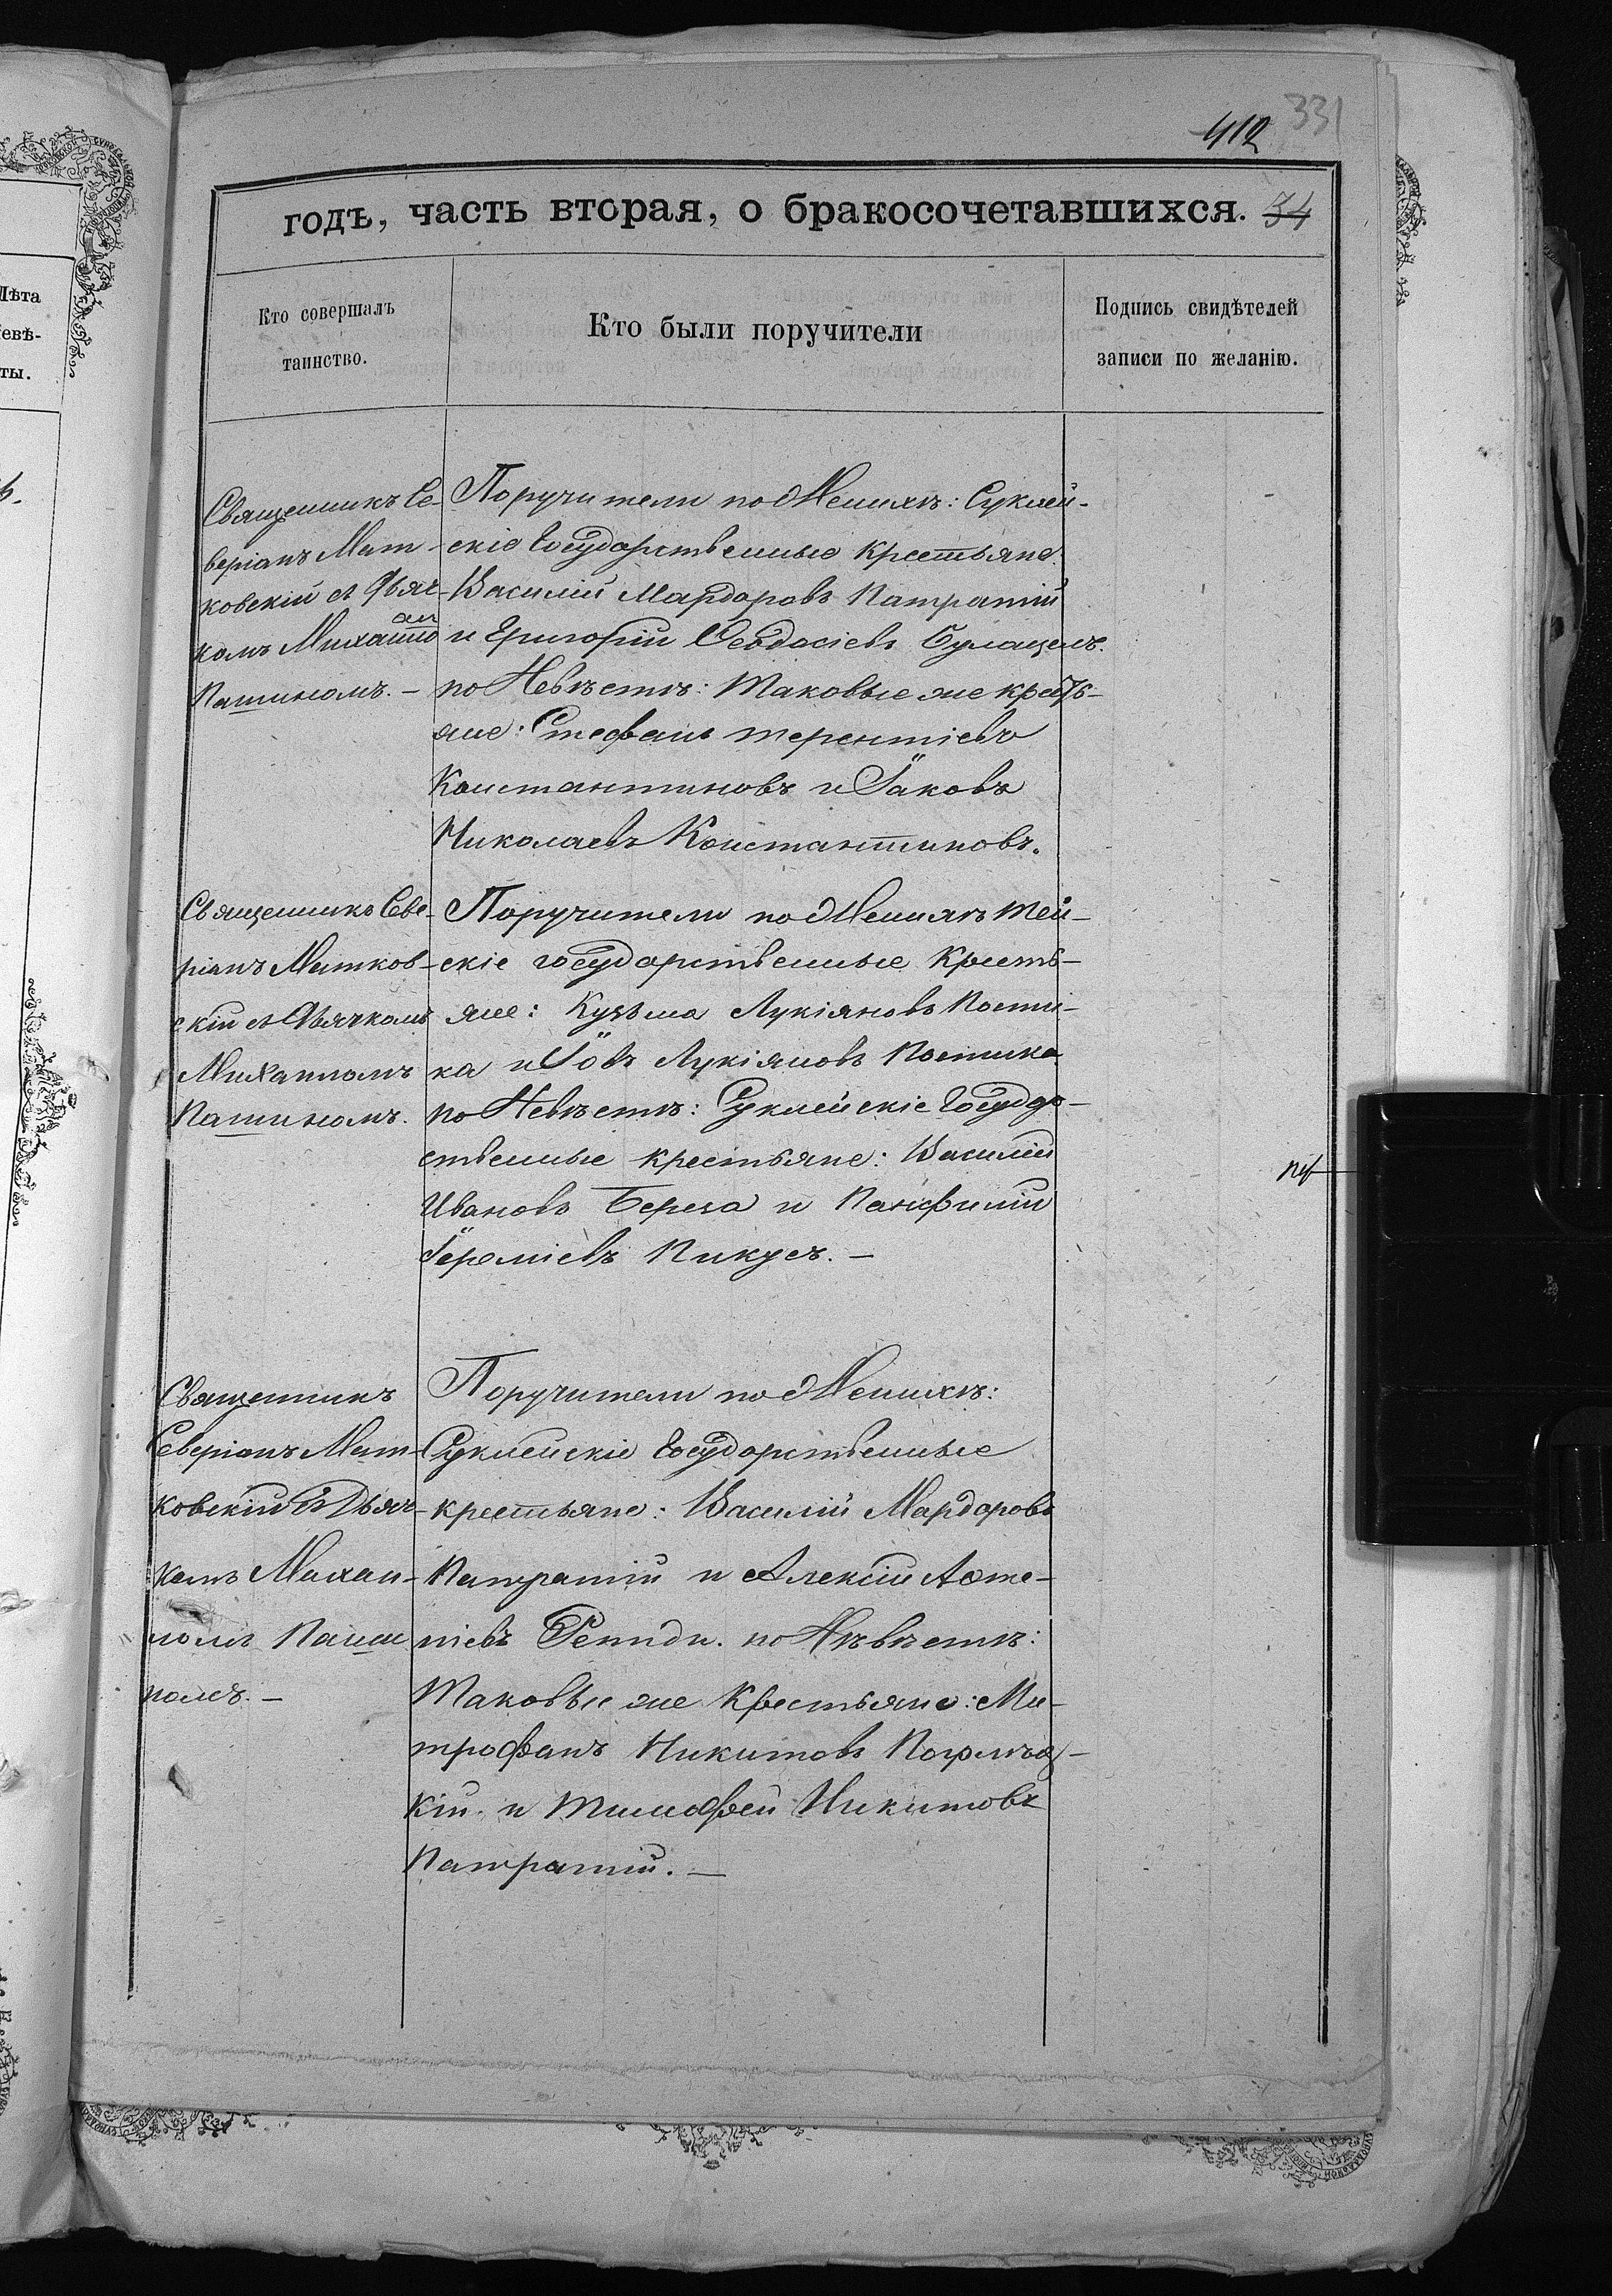 331
412
годъ, часть вторая, о бракосочетавшихся. 34
Лѣта
невѣ-
ты.
Кто совершалъ
таинство.
Кто были поручители
Подпись свидѣтелей
записи по желанію.
Священникъ Се-
веріанъ Мат-
ковскій съ Дьяч-
комъ Михаило
Пашиномъ. –
Поручители по Женихѣ: Суклей-
скіе Государственные крестьяне
Василій Мардаровъ Патратій
и Григорій Ѳеодосіевъ Булацелъ.
по Невѣстѣ: Таковые же кресть-
яне: Стефанъ Терентіевъ
Константиновъ и Іаковъ
Николаевъ Константиновъ.
Священникъ Севе-
ріанъ Матков-
скій съ Дьячкомъ
Михаиломъ
Пашиномъ.
Поручители по Женихѣ Тей-
скіе государственные Кресть-
яне: Кузьма Лукіяновъ Пости-
ка и Іовъ Лукіяновъ Постика
по Невѣстѣ: Суклейскіе Государ-
ственные крестьяне: Василій
Ивановъ Береза и Панфилій
Іереміевъ Пикусъ. –
Священникъ
Северіанъ Мат-
ковскій съ Дьяч-
комъ Михаи-
ломъ Паши
номъ. –
Поручители по Женихѣ:
Суклейскіе Государственные
крестьяне: Василій Мардаровъ
Патратій и Алексій
по Невѣстѣ:
Таковые же Крестьяне: Ми-
трофанъ Никитовъ
кій и Тимофей Никитовъ
Патратій. –